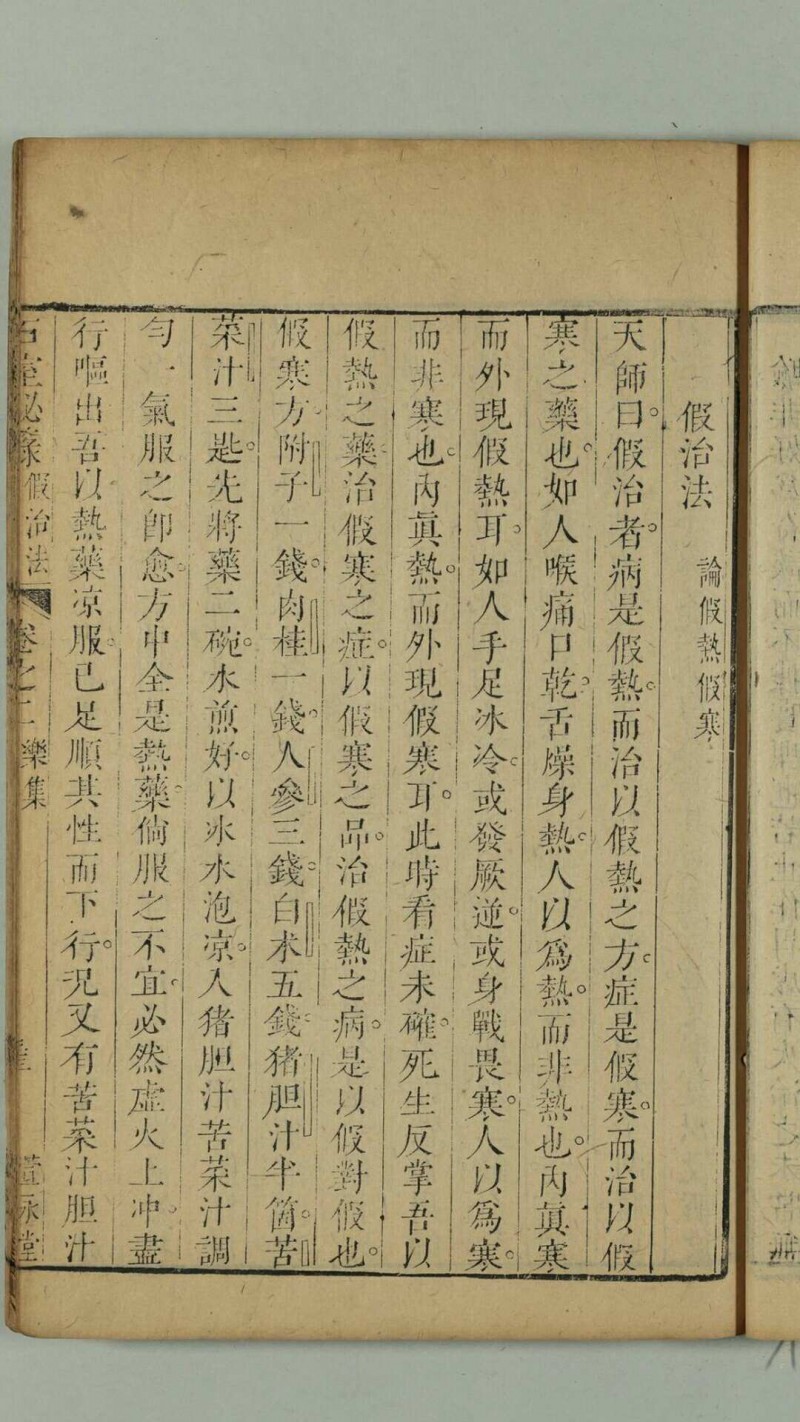 假治法　論假熱假寒
天師曰。假治者。病是假熱。而治以假熱之方。症是假寒。而治以假
寒之藥也。如人喉痛口乾。舌燥身熱。人以爲熱。而非熱也。內眞寒
而外現假熱耳。如人手足冰冷。或發厥逆。或身戰畏寒。人以爲寒。
而非寒也。內眞熱。而外現假寒耳。此時看症未確。死生反掌吾以
假熱之藥。治假寒之症。以假寒之品。治假熱之病。是以假對假也。
假寒方。附子一錢。肉桂一錢。人參三錢。白朮五錢。猪胆汁半箇。苦
菜汁三匙。先將藥二碗。水煎好。以氷水泡凉。入猪胆汁苦菜汁調
勻一氣服之卽愈。方中全是熱藥。倘服之不宜。必然虛火上冲。盡
行嘔出吾以熱藥凉服。已足順其性而下行。况又有苦菜汁胆汁
石室秘彔　假治法　卷之二　樂集　萱永堂